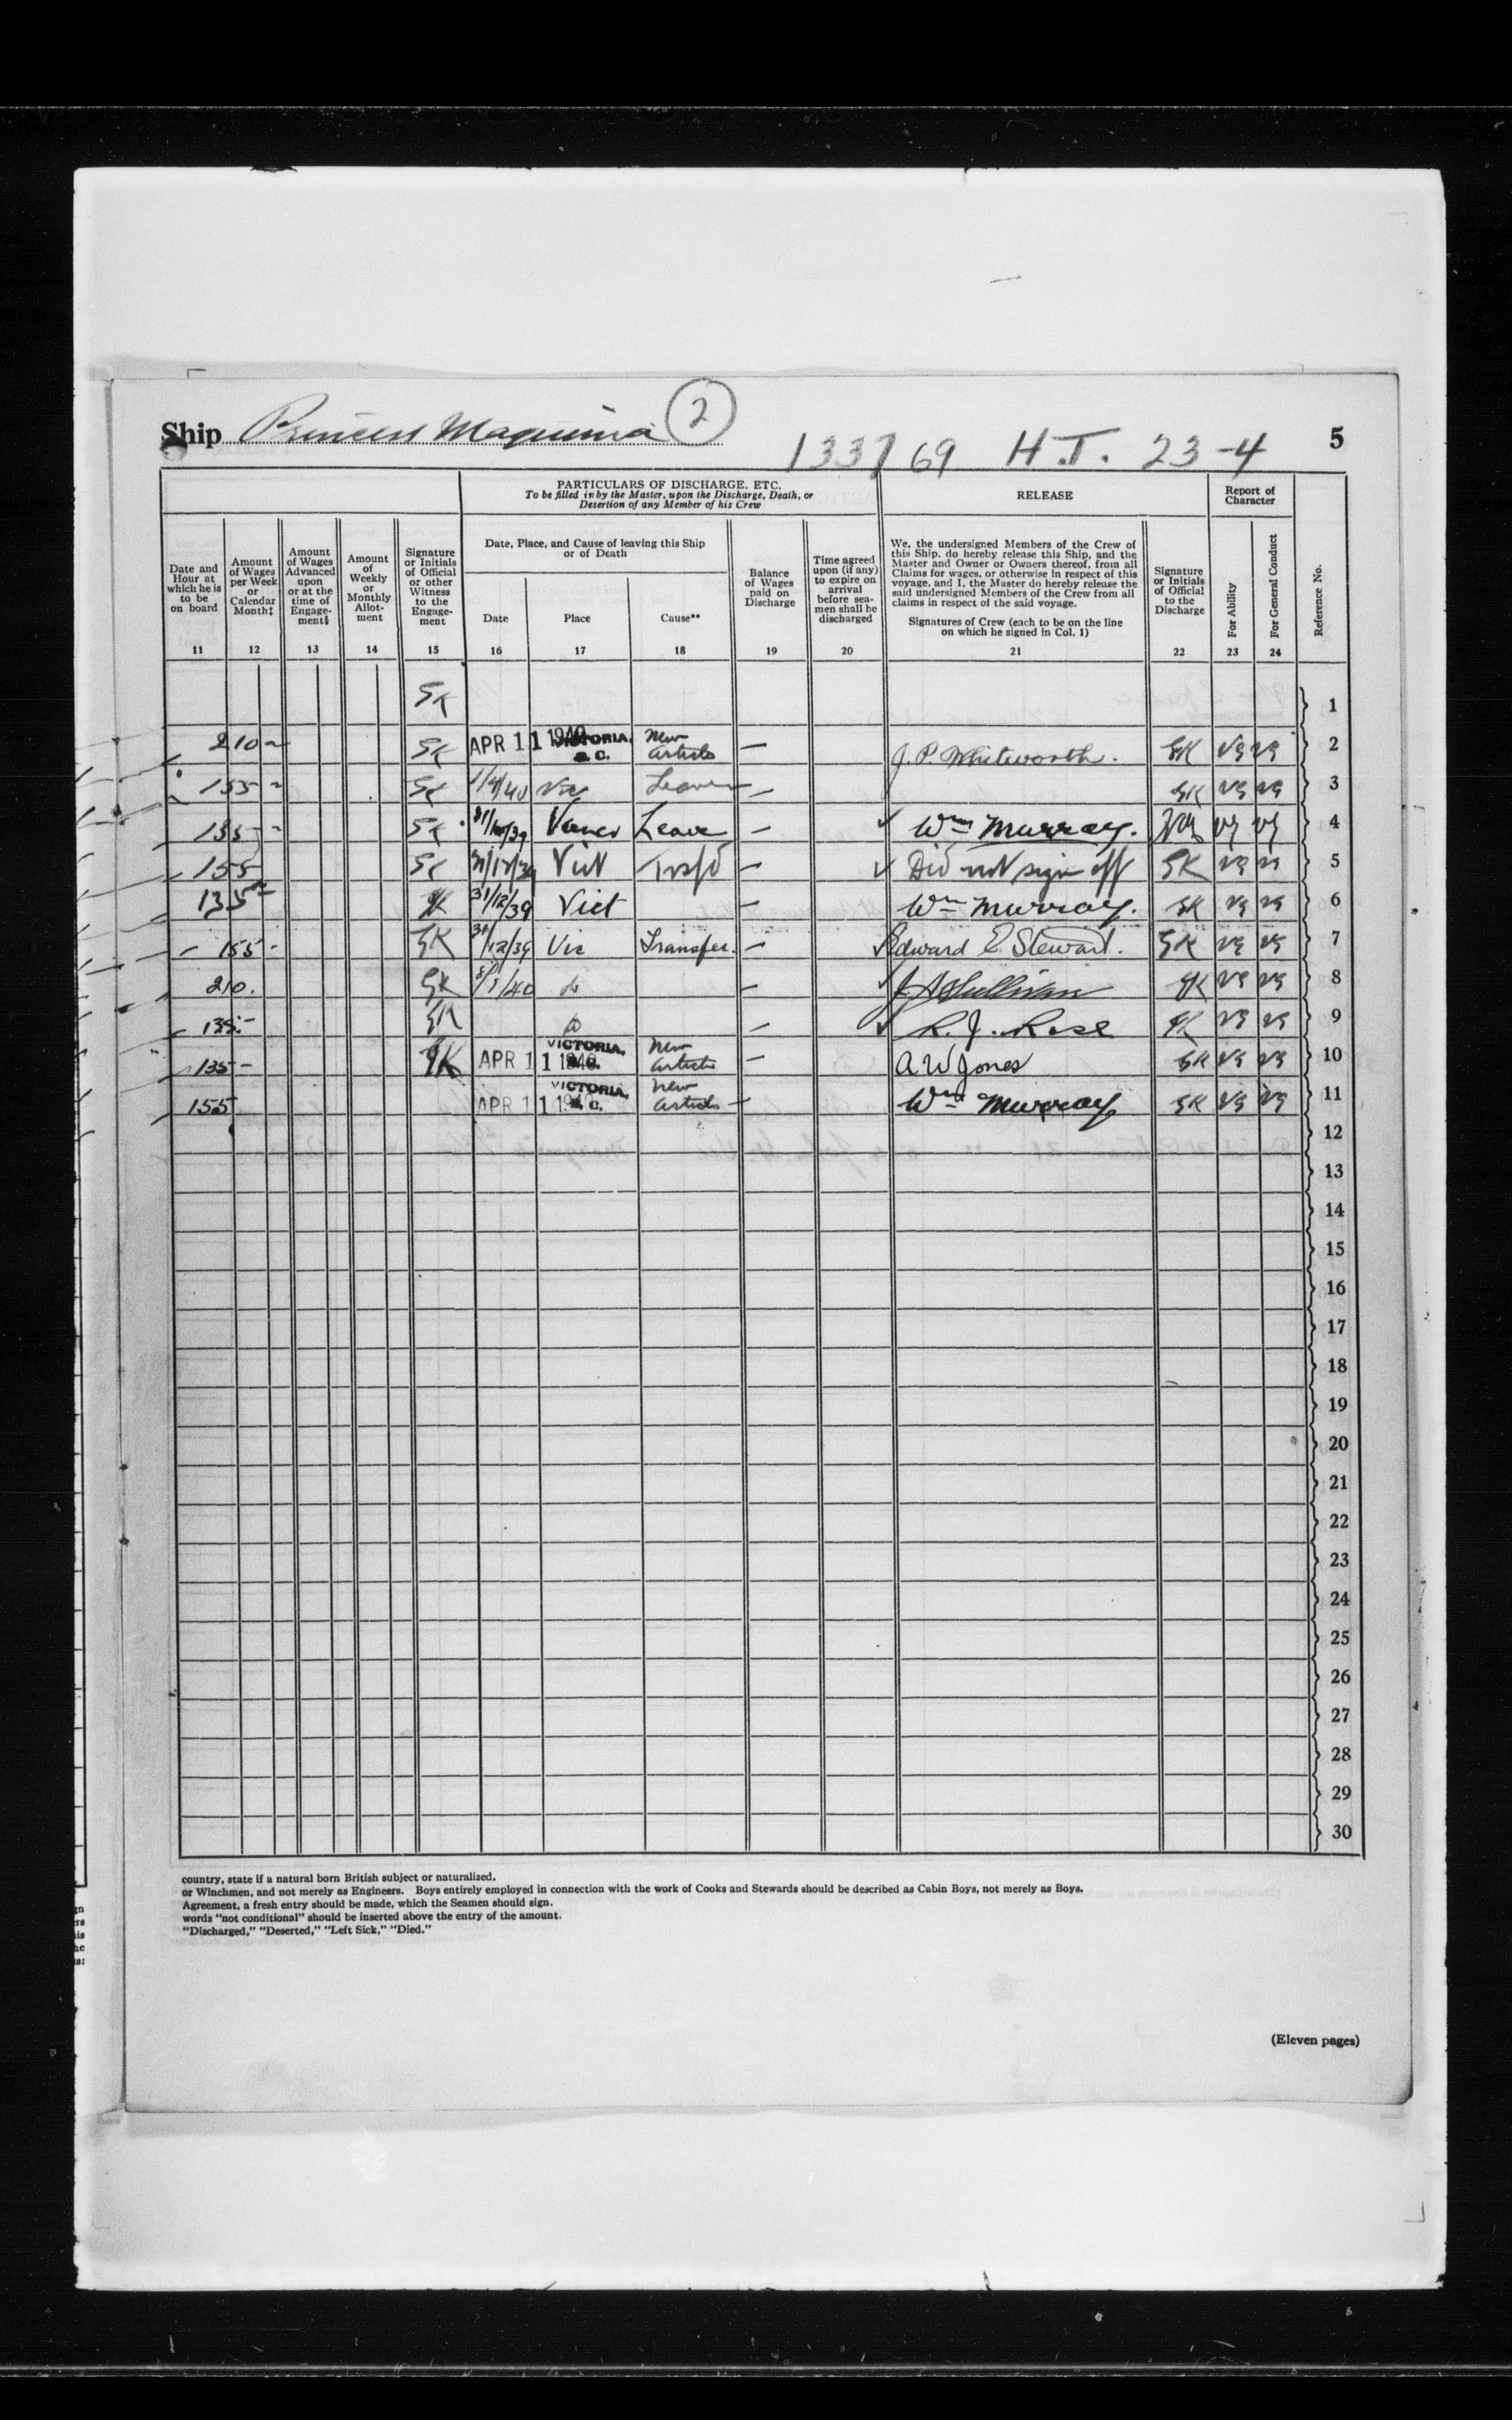 Ship Princess Maquinna 2
133769 H.T. 23-4 5
PARTICULARS OF DISCHARGE, ETC.
To be filled in by the Master, upon the Discharge, Death, or Desertion of any Member of his Crew
RELEASE
Report of Character
Date and Hour at which he is to be on board
Amount of Wages per Week or Calendar Month‡
Amount of Wages Advanced upon or at the time of Engagement§
Amount of Weekly or Monthly Allotment
Signature or Initials of Official or other Witness to the Engagement
Date, Place, and Cause of leaving this Ship or of Death
Date Place Cause**
Balance of Wages paid on Discharge
Time agreed upon (if any) to expire on arrival before seamen shall be discharged
We, the undersigned Members of the Crew of
this Ship, do hereby release this Ship, and the
Master and Owner or Owners thereof, from all
Claims for wages, or otherwise in respect of this
voyage, and I, the Master do hereby release the
said undersigned Members of the Crew from all
claims in respect of the said voyage.
Signatures of Crew (each to be on the line
on which he signed in Col. 1)
Signature or Initials of Official to the Discharge
For Ability
For General Conduct
Reference No.
11 12 13 14 15 16 17 18 19 20 21 22 23 24
SK 1
210 SK APR 11 1940 VICTORIA, B.C. New Articles — J. P. Whitworth. SK VG VG 2
155 SK 1/4/40 Vic Leave — SK VG VG 3
135 SK 31/10/39 Vancr Leave — Wm Murray. VG VG 4
155 SK 31/12/39 Vict Trsfd — Did not sign off SK VG VG 5
135 SK 31/12/39 Vict — Wm Murray. SK VG VG 6
155 SK 31/12/39 Vic Transfer. — Edward E. Stewart. SK VG VG 7
210. SK /1/40 do — J. A. Sullivan SK VG VG 8
135 SK do — R. J. Rose SK VG VG 9
135 SK APR 11 1940 VICTORIA, B.C. New Articles — A W Jones SK VG VG 10
155 APR 11 1940 VICTORIA, B.C. New Articles — Wm Murray SK VG VG 11
12
13
14
15
16
17
18
19
20
21
22
23
24
25
26
27
28
29
30
country, state if a natural born British subject or naturalized.
or Winchmen, and not merely as Engineers. Boys entirely employed in connection with the work of Cooks and Stewards should be described as Cabin Boys, not merely as Boys.
Agreement, a fresh entry should be made, which the Seamen should sign.
words "not conditional" should be inserted above the entry of the amount.
"Discharged," "Deserted," "Left Sick," "Died."
(Eleven pages)